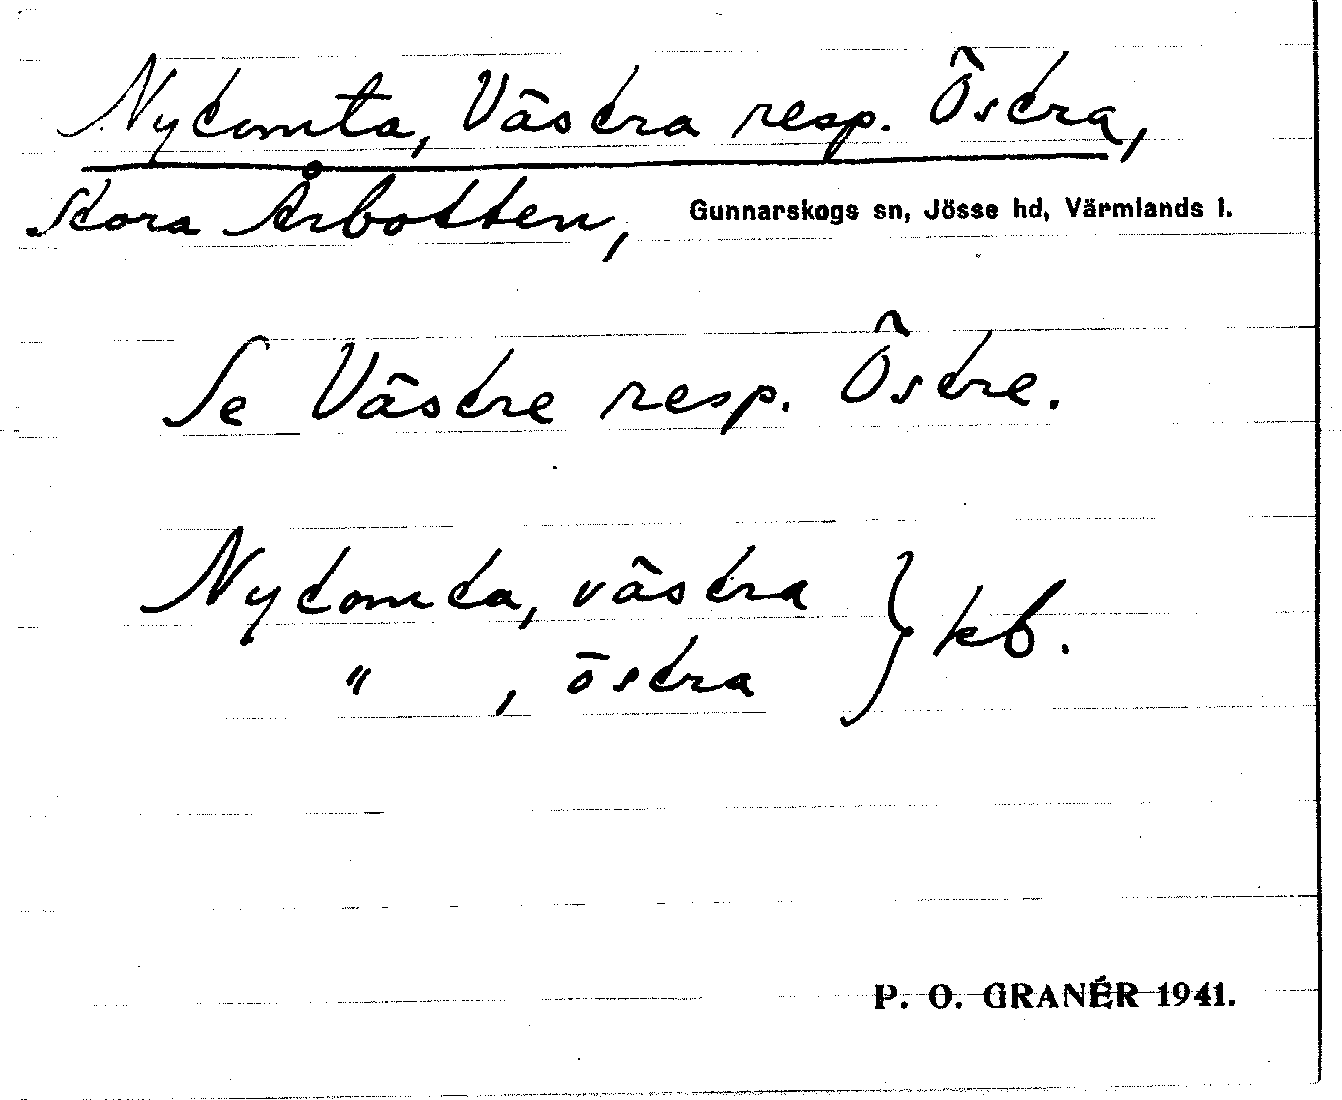 Nytomta, Västra resp. Östra,
Stora Årbotten, Gunnarskogs sn, Jösse hd, Värmlands l.
Se Västre resp. Östre.
Nytomta, västra } kb.
" , östra
P. O. GRANÉR 1941.